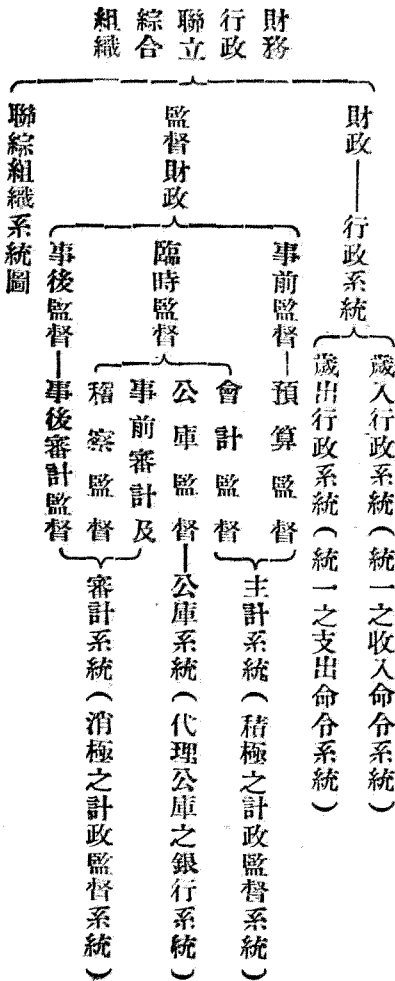 財務
行政
聯立
綜合
組織
財政——行政系統
歲入行政系統(統一之收入命令系統)
歲出行政系統(統一之支出命令系統)
監督財政
事前監督—預算監督
臨時監督
會計監督
主計系統(積極之計政監督系統)
公庫監督—公庫系統(代理公庫之銀行系統)
事前審計及
稽察監督
事後監督—事後審計監督
審計系統(消極之計政監督系統)
聯綜組織系統圖